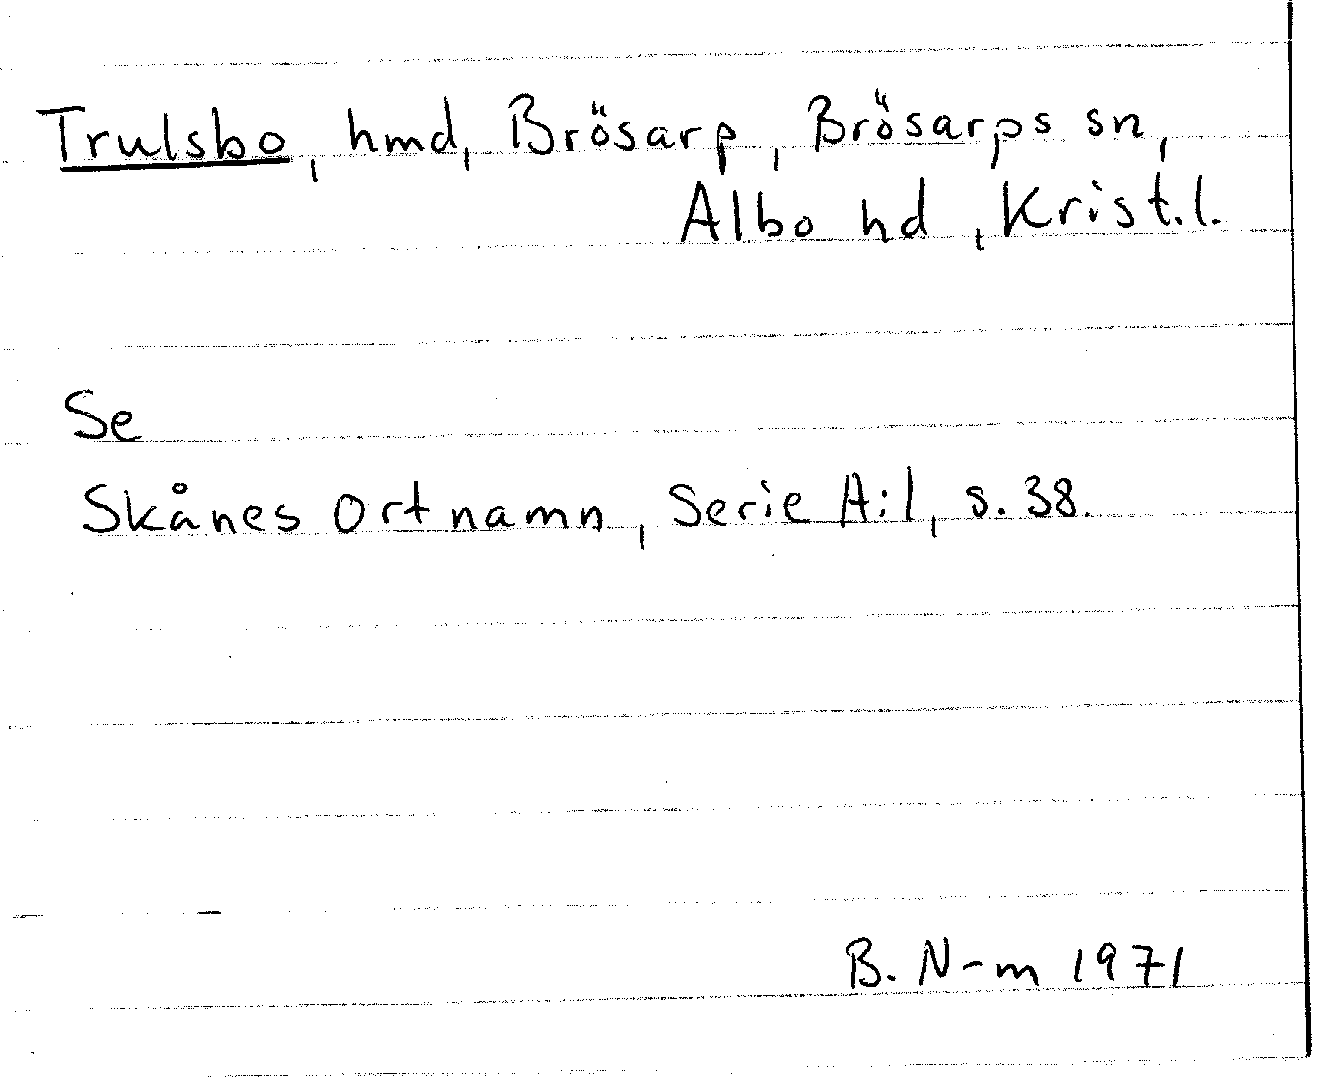 Trulsbo, hmd, Brösarp, Brösarps sn,
Albo hd, Krist.l.
Se
Skånes Ortnamn, Serie A:1, s. 38.
B. N-m 1971